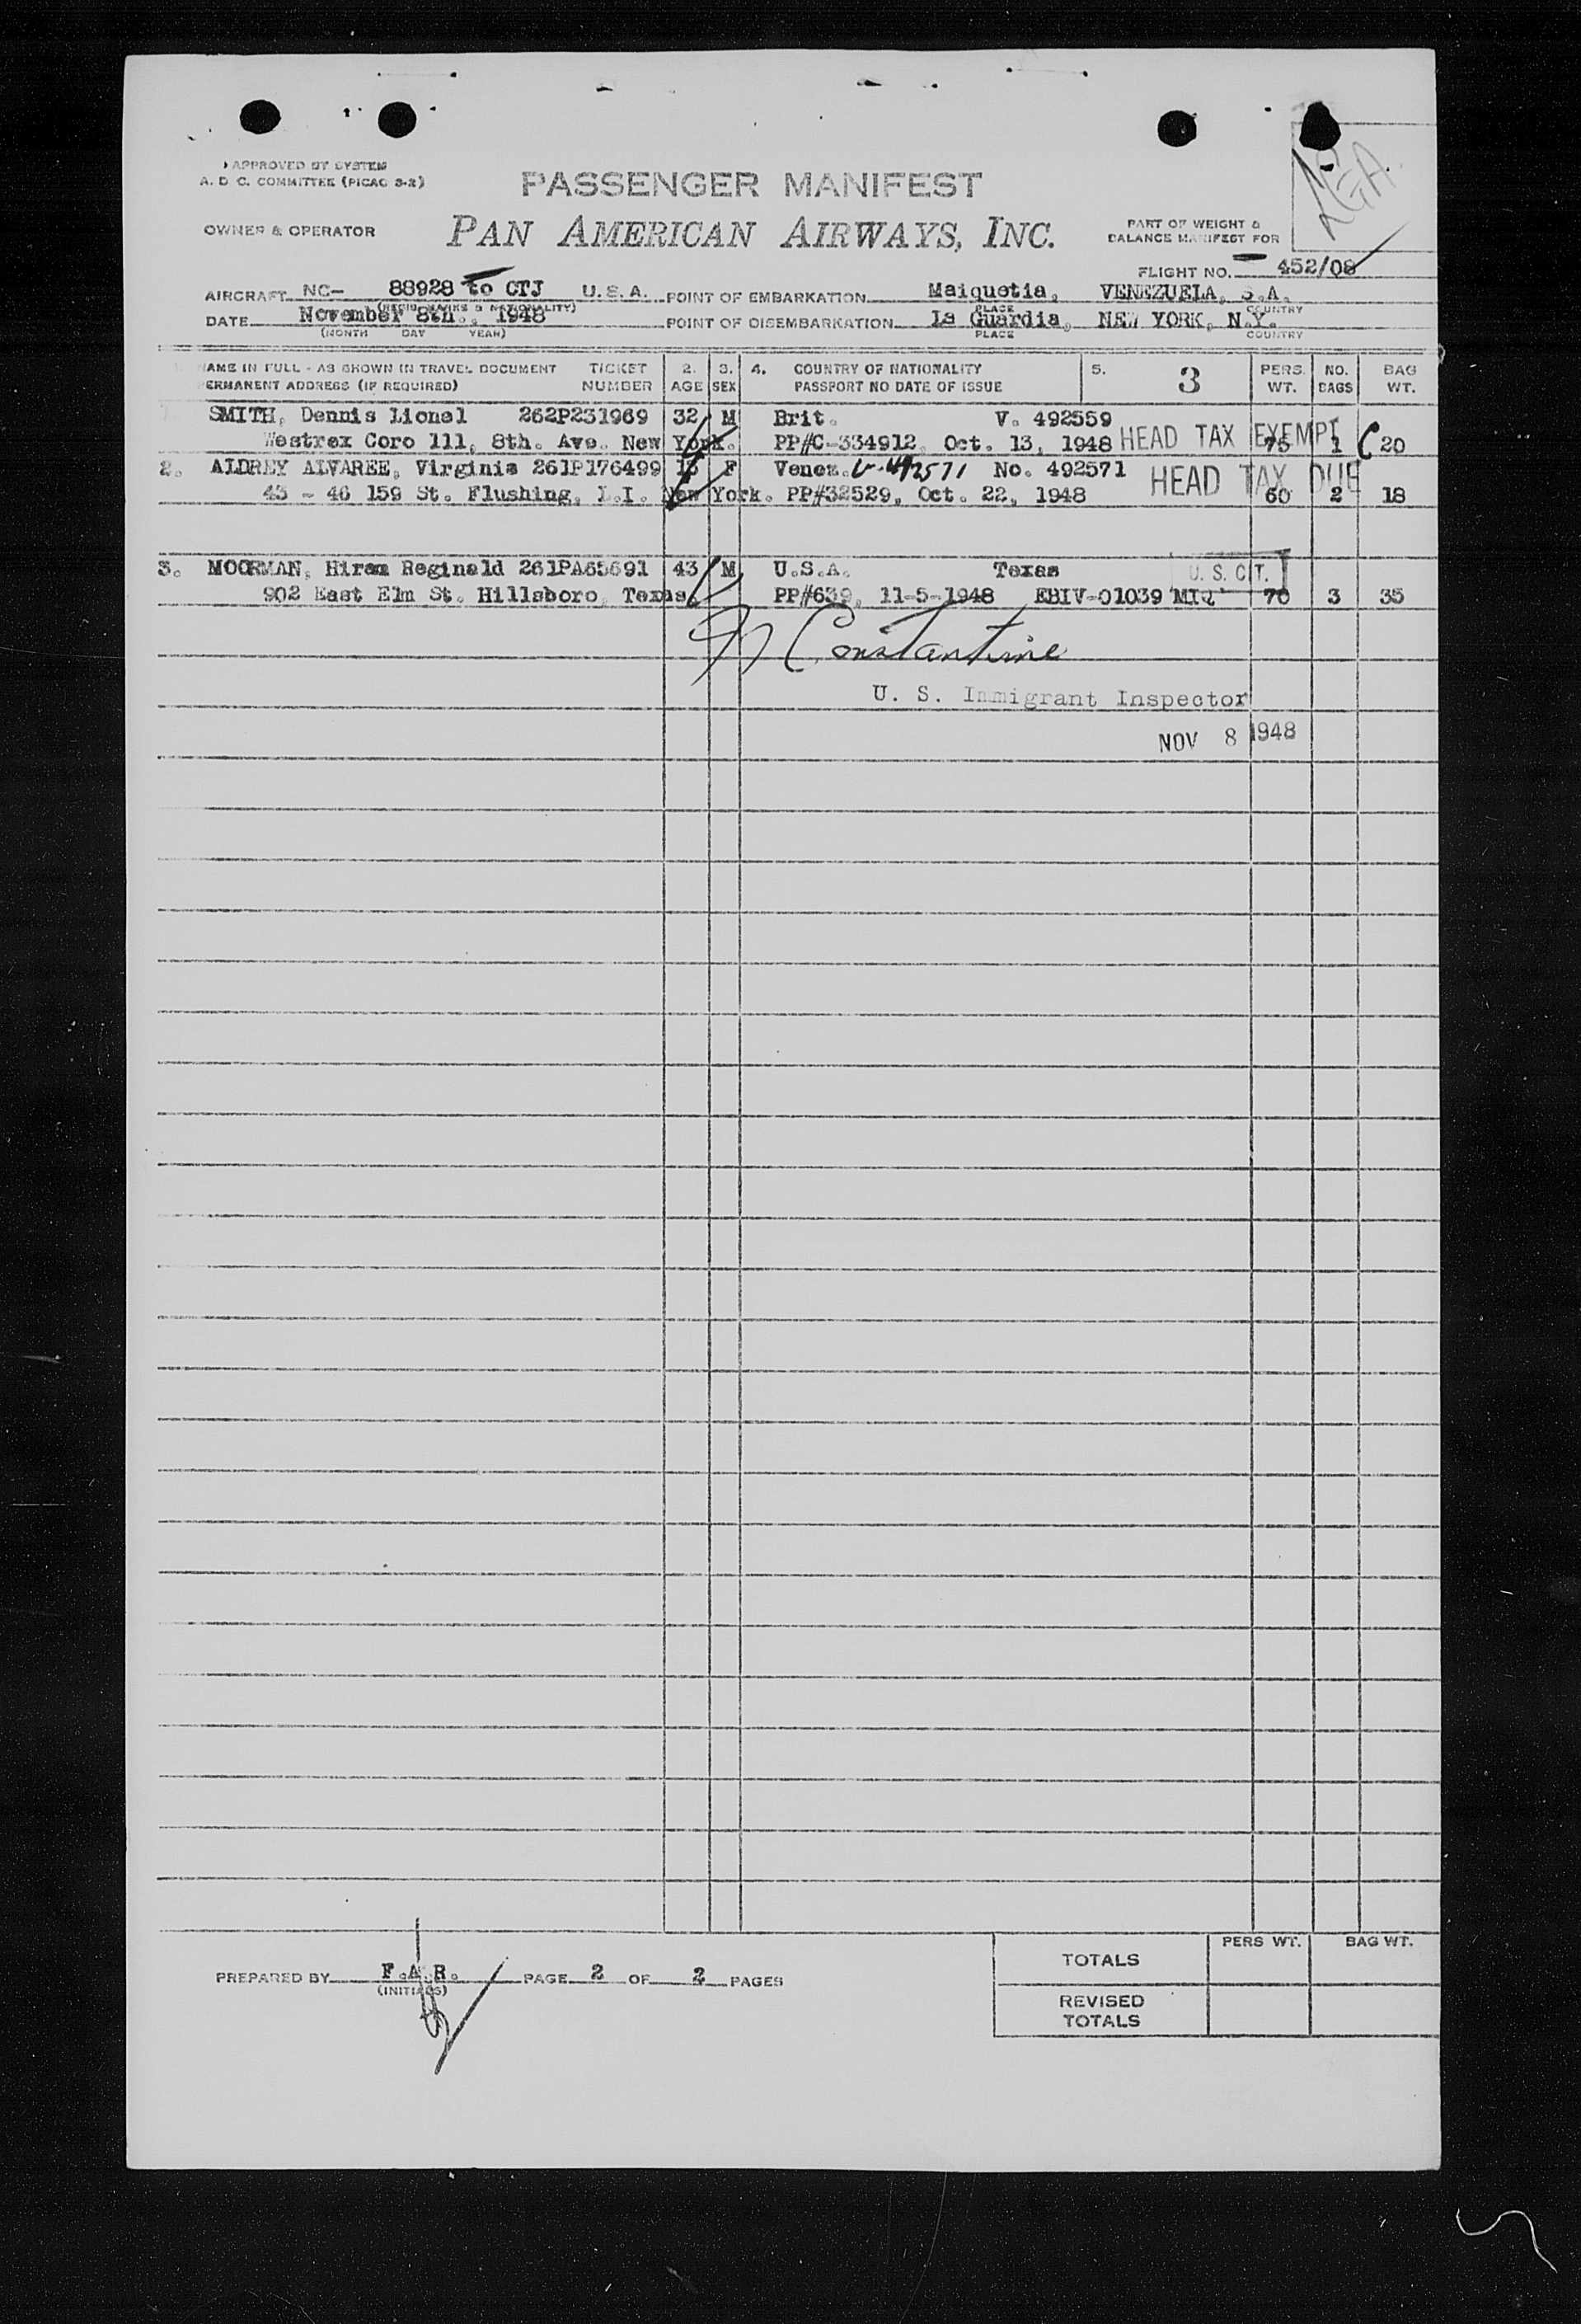 APPROVED BY SYSTEM
A. D. C. COMMITTEE (PICAO 3-2)
PASSENGER MANIFEST
LGA
OWNER & OPERATOR
PAN AMERICAN AIRWAYS, INC.
PART OF WEIGHT &
BALANCE MANIFEST FOR
FLIGHT NO. 452/08
AIRCRAFT NC- 88928 to CTJ U.S.A. POINT OF EMBARKATION Maiquetia, VENEZUELA, S.A.
(REGIS. MARKS & NATIONALITY) PLACE COUNTRY
DATE November 8th., 1948 POINT OF DISEMBARKATION La Guardia, NEW YORK, N.Y.
(MONTH DAY YEAR) PLACE COUNTRY
NAME IN FULL - AS SHOWN IN TRAVEL DOCUMENT TICKET 2. 3. 4. COUNTRY OF NATIONALITY 5. 3 PERS. NO. BAG
PERMANENT ADDRESS (IF REQUIRED) NUMBER AGE SEX PASSPORT NO DATE OF ISSUE WT. BAGS WT.
SMITH, Dennis Lionel 262P231969 32 M Brit. V. 492559
Westrex Coro 111, 8th. Ave. New York. PP#C-334912, Oct. 13, 1948 HEAD TAX EXEMPT 75 1 20
2. ALDREY ALVAREE, Virginia 261P176499 F Venez. V-492571 No. 492571
43 - 46 159 St. Flushing, L.I. New York. PP#32529, Oct. 22, 1948 HEAD TAX DUE 60 2 18
3. MOORMAN, Hiram Reginald 261PA65691 43 M U.S.A. Texas U. S. CIT.
902 East Elm St. Hillsboro, Texas PP#639, 11-5-1948 EBIV-01039 MIQ 70 3 35
N Constantine
U. S. Immigrant Inspector
NOV 8 1948
PREPARED BY F.A.R. PAGE 2 OF 2 PAGES
(INITIALS)
PERS WT. BAG WT.
TOTALS
REVISED
TOTALS